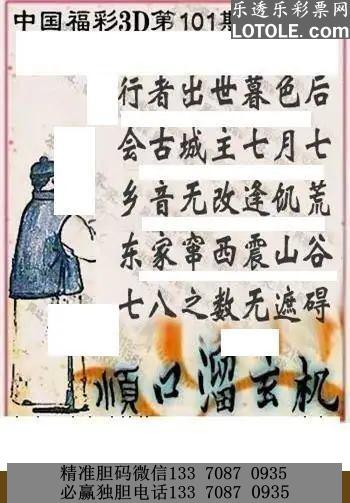 乐透乐彩票网
LOTOLE.COM
中国福彩3D第101期
行者出世暮色后
会古城主七月七
乡音无改逢饥荒
东家窜西震山谷
七八之数无遮碍
顺口溜玄机
精准胆码微信133 7087 0935
必赢独胆电话133 7087 0935